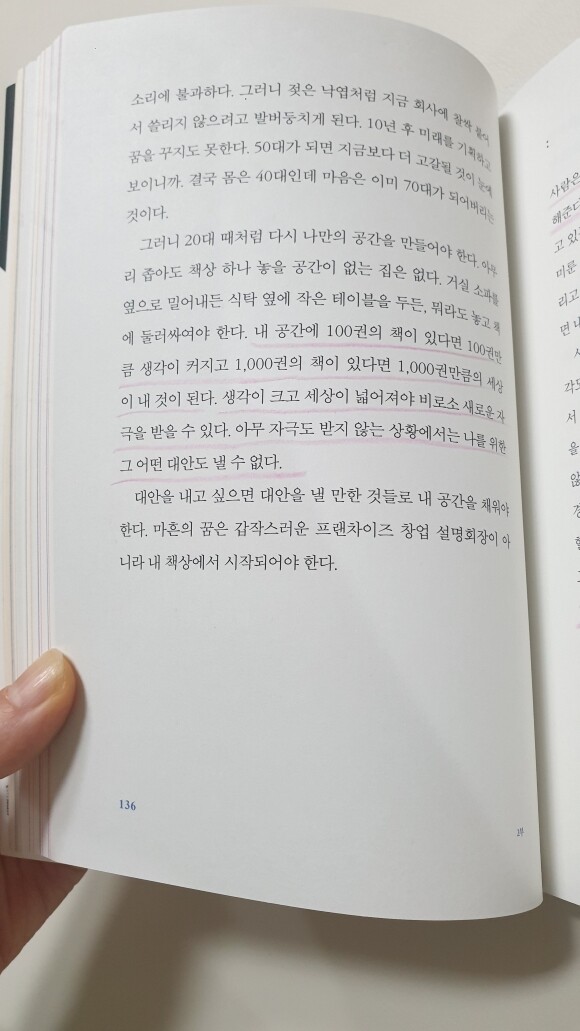 소리에 불과하다. 그러니 젖은 낙엽처럼 지금 회사에 찰싹 붙어
서 쓸리지 않으려고 발버둥치게 된다. 10년 후 미래를 기획하고
꿈을 꾸지도 못한다. 50대가 되면 지금보다 더 고갈될 것이 눈에
보이니까. 결국 몸은 40대인데 마음은 이미 70대가 되어버리는
것이다.
그러니 20대 때처럼 다시 나만의 공간을 만들어야 한다. 아무
리 좁아도 책상 하나 놓을 공간이 없는 집은 없다. 거실 소파를
옆으로 밀어내든 식탁 옆에 작은 테이블을 두든, 뭐라도 놓고 책
에 둘러싸여야 한다. 내 공간에 100권의 책이 있다면 100권만
큼 생각이 커지고 1,000권의 책이 있다면 1,000권만큼의 세상
이 내 것이 된다. 생각이 크고 세상이 넓어져야 비로소 새로운 자
극을 받을 수 있다. 아무 자극도 받지 않는 상황에서는 나를 위한
그 어떤 대안도 낼 수 없다.
대안을 내고 싶으면 대안을 낼 만한 것들로 내 공간을 채워야
한다. 마흔의 꿈은 갑작스러운 프랜차이즈 창업 설명회장이 아
니라 내 책상에서 시작되어야 한다.
136
사람은
해준다
고 있
미룬
리고
면 내
각도
서
을
않